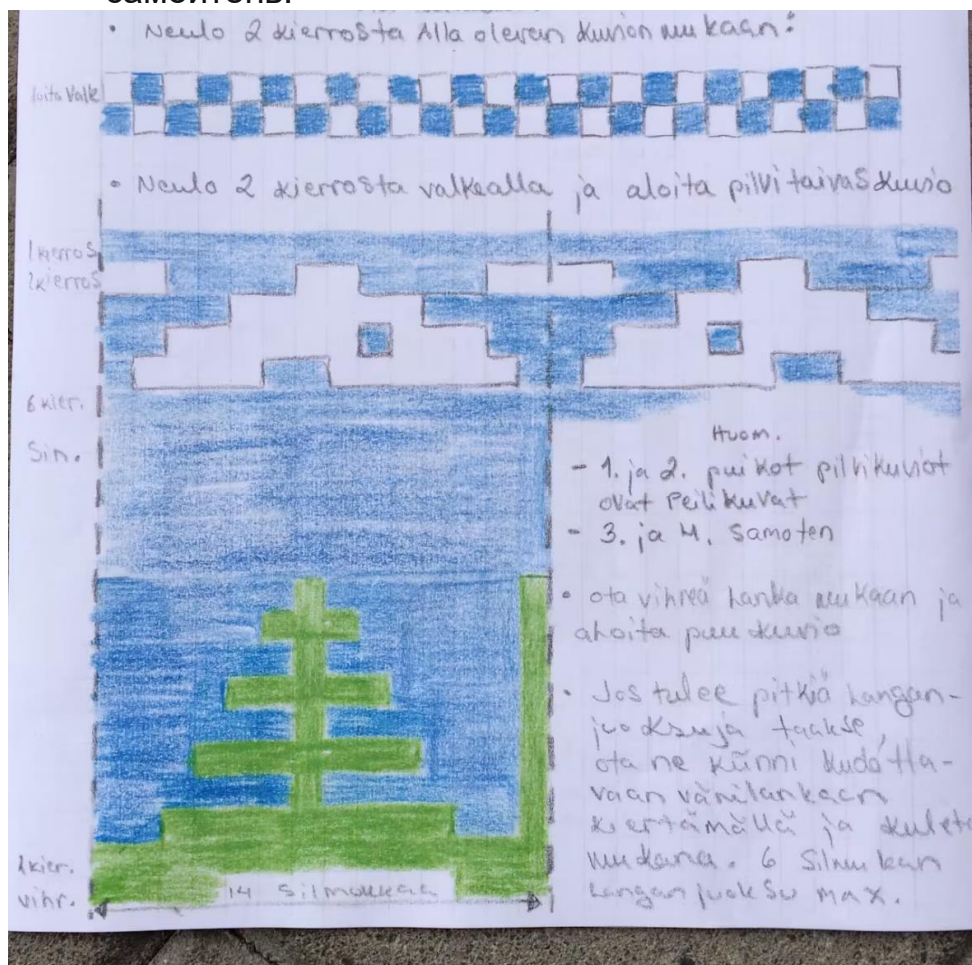 • Neulo 2 kierrosta Alla olevan kuvion mukaan:
• Neulo 2 kierrosta valkealla ja aloita pilvitaivas kuvio
1 kierros
2 kierros
6 kier.
Sin.
Huom.
- 1. ja 2. puikot pilvikuviot
ovat Peilikuvat
- 3. ja 4. Samoten
• ota vihreä Lanka mukaan ja
aloita puu kuvio
• Jos tulee pitkiä Langan-
juoksuja taakse,
ota ne künni kudotta-
vaan värilankaan
kiertämällä ja kuleta
mukana. 6 Silmukan
Langan juoksu max.
kier.
vihr.
14 Silmukkaa